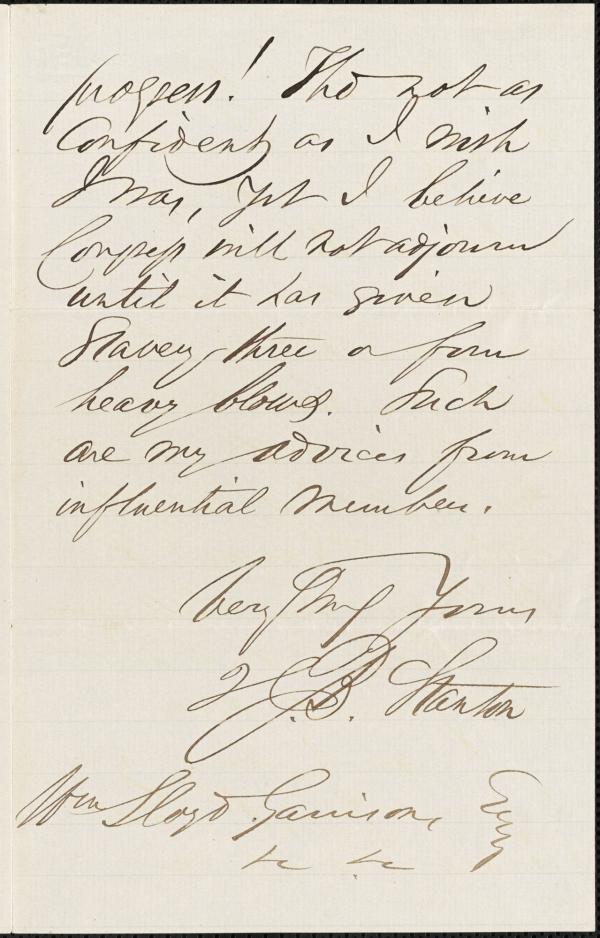 progress! Tho not as
Confident as I wish
I was, yet I believe
Congress will not adjourn
until it has given
Slavery three or four
heavy blows. Such
are my advices from
influential members.
Very Truly Yours
H. B. Stanton
Wm Lloyd Garrison, Esq
&c &c